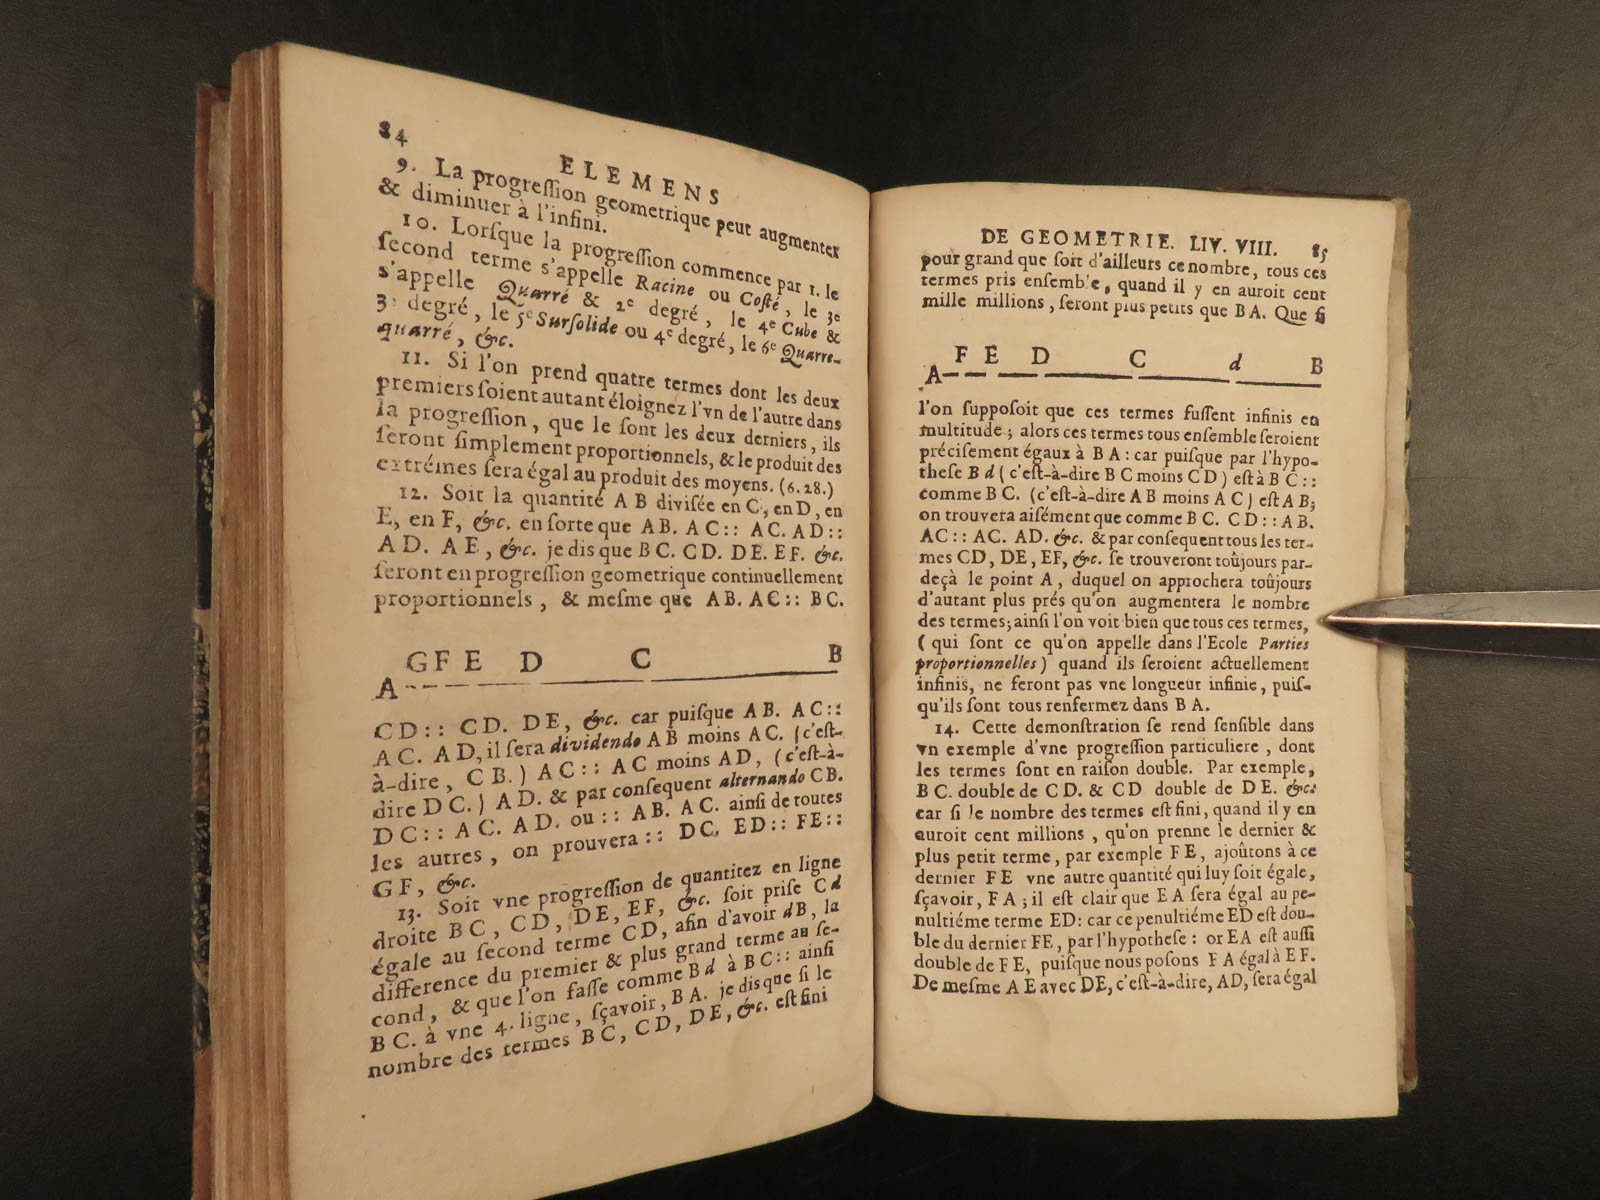 84
ELEMENS
9. La progreſſion geometrique peut augmenter
& diminuer à l'infini.
10. Lorſque la progreſſion commence par 1. le
ſecond terme s'appelle Racine ou Coſté, le 3e
s'appelle Quarré & 2e degré, le 4e Cube &
3e degré, le 5e Surſolide ou 4e degré, le 6e Quarre-
quarré, &c.
11. Si l'on prend quatre termes dont les deux
premiers ſoient autant éloignez l'vn de l'autre dans
la progreſſion, que le ſont les deux derniers, ils
ſeront ſimplement proportionnels, & le produit des
extrémes ſera égal au produit des moyens. (6.28.)
12. Soit la quantité AB diviſée en C, en D, en
E, en F, &c. en ſorte que AB. AC:: AC. AD::
AD. AE, &c. je dis que BC. CD. DE. EF. &c.
ſeront en progreſſion geometrique continuellement
proportionnels, & meſme que AB. AC:: BC.
G F E D C B
A
CD:: CD. DE, &c. car puiſque AB. AC::
AC. AD, il ſera dividendo AB moins AC. (c'eſt-
à-dire, CB.) AC:: AC moins AD, (c'eſt-à-
dire DC.) AD. & par conſequent alternando CB.
DC:: AC. AD. ou:: AB. AC. ainſi de toutes
les autres, on prouvera:: DC. ED:: FE::
GF, &c.
13. Soit vne progreſſion de quantitez en ligne
droite BC, CD, DE, EF, &c. ſoit priſe Cd
égale au ſecond terme CD, afin d'avoir dB, la
difference du premier & plus grand terme au ſe-
cond, & que l'on faſſe comme Bd à BC:: ainſi
BC. à vne 4. ligne, ſçavoir, BA. je dis que ſi le
nombre des termes BC, CD, DE, &c. eſt fini
DE GEOMETRIE. LIV. VIII. 85
pour grand que ſoit d'ailleurs ce nombre, tous ces
termes pris enſemble, quand il y en auroit cent
mille millions, ſeront plus petits que BA. Que ſi
F E D C d B
A
l'on ſuppoſoit que ces termes fuſſent infinis en
multitude; alors ces termes tous enſemble ſeroient
préciſement égaux à BA: car puiſque par l'hypo-
theſe Bd (c'eſt-à-dire BC moins CD) eſt à BC::
comme BC. (c'eſt-à-dire AB moins AC) eſt AB;
on trouvera aiſément que comme BC. CD:: AB.
AC:: AC. AD. &c. & par conſequent tous les ter-
mes CD, DE, EF, &c. ſe trouveront toûjours par-
deçà le point A, duquel on approchera toûjours
d'autant plus prés qu'on augmentera le nombre
des termes; ainſi l'on voit bien que tous ces termes,
(qui ſont ce qu'on appelle dans l'Ecole Parties
proportionnelles) quand ils ſeroient actuellement
infinis, ne feront pas vne longueur infinie, puiſ-
qu'ils ſont tous renfermez dans BA.
14. Cette demonſtration ſe rend ſenſible dans
vn exemple d'vne progreſſion particuliere, dont
les termes ſont en raiſon double. Par exemple,
BC. double de CD. & CD double de DE. &c:
car ſi le nombre des termes eſt fini, quand il y en
auroit cent millions, qu'on prenne le dernier &
plus petit terme, par exemple FE, ajoûtons à ce
dernier FE vne autre quantité qui luy ſoit égale,
ſçavoir, FA; il eſt clair que EA ſera égal au pe-
nultiéme terme ED: car ce penultiéme ED eſt dou-
ble du dernier FE, par l'hypotheſe: or EA eſt auſſi
double de FE, puiſque nous poſons FA égal à EF.
De meſme AE avec DE, c'eſt-à-dire, AD, ſera égal